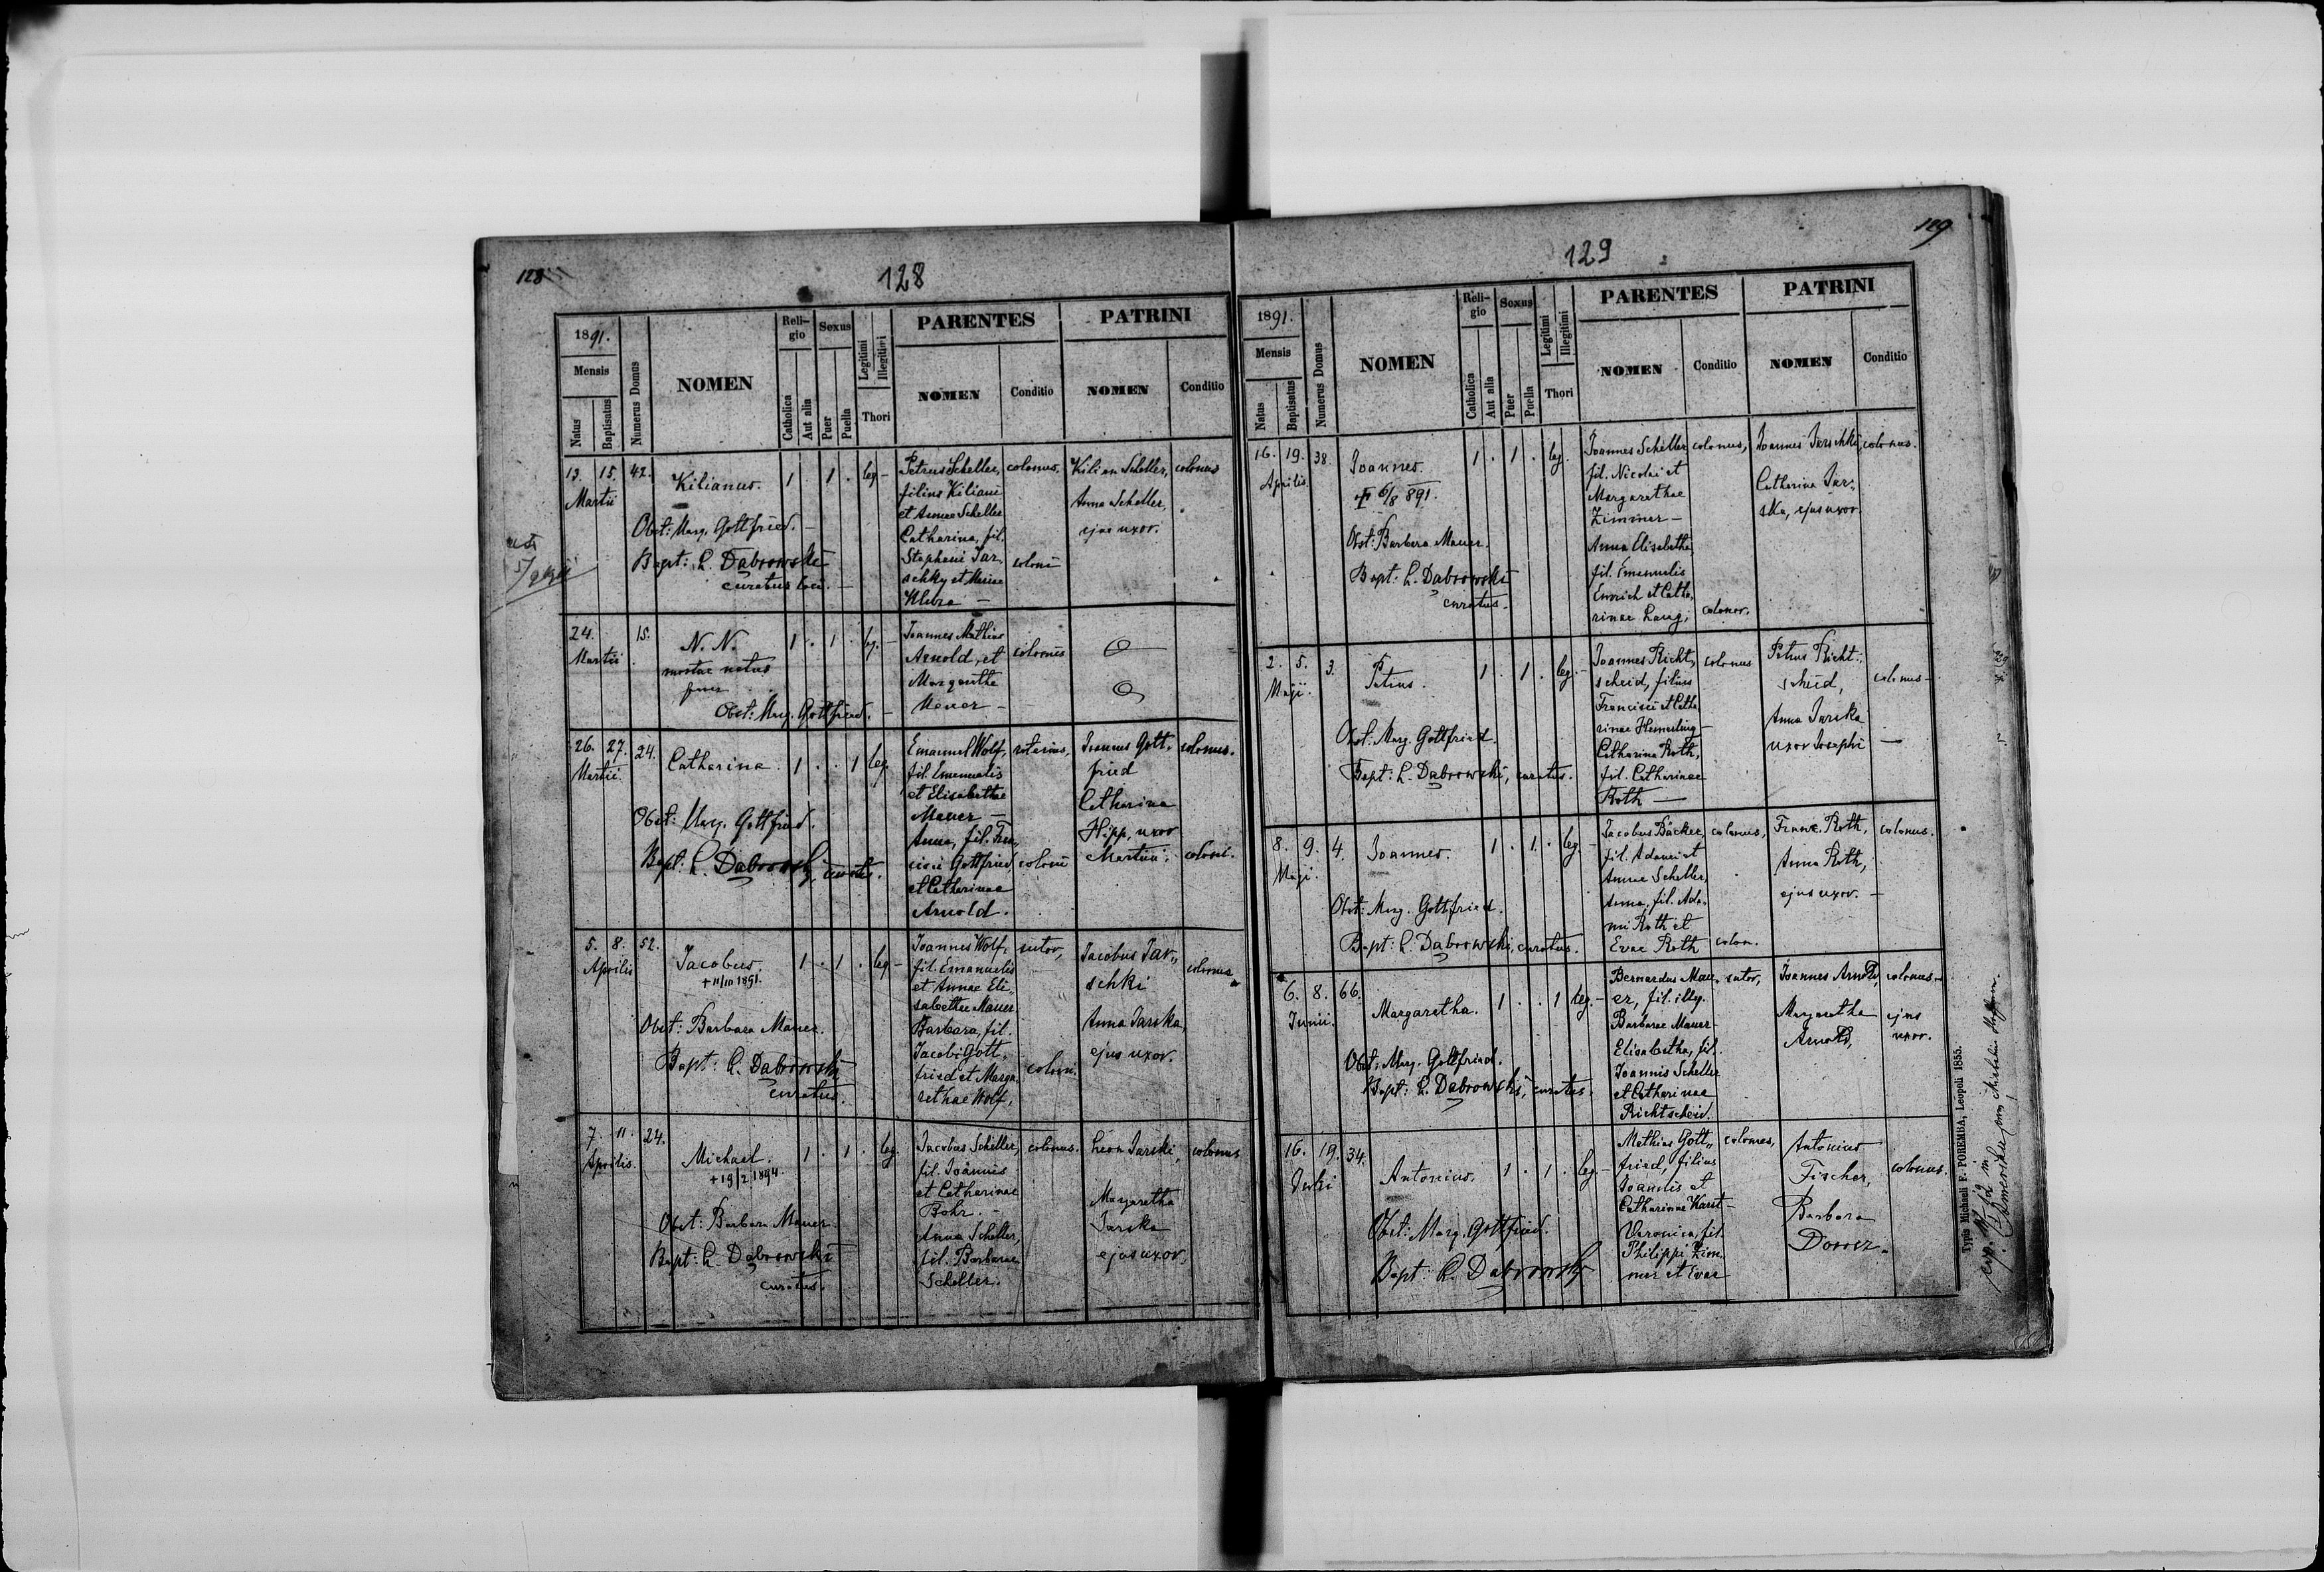 128
128
1891.
Mensis
Natus
Baptisatus
Numerus Domus
NOMEN
Reli-
gio
Catholica
Aut alia
Sexus
Puer
Puella
Legitimi
Illegitimi
Thori
PARENTES
NOMEN
Conditio
PATRINI
NOMEN
Conditio
13. 15. 42.
Martii
Kilianus. 1 . 1 . leg -
Obst: Marg. Gottfried. -
Bapt: L. Dąbrowski
curatus loci. -
Petrus Scheller, colonus.
filius Kiliani
et Annae Scheller
Catharina, fil.
Stephani Jar-
schky et Mariae coloni
Klebra -
Kilian Scheller, colonus
Anna Scheller,
ejus uxor.
24. 15.
Martii
N. N. 1 . 1 . leg. -
mortue natus
puer
Obst: Marg. Gottfried. -
Joannes Mathias
Arnold, et colonus
Margaretha
Mauer -
26. 27. 24.
Martii.
Catharina. 1 . . 1 leg
Obst: Marg. Gottfried.
Bapt: L. Dąbrowski, curatus.
Emanuel Wolf,
fil. Emanuelis
et Elisabethae
Mauer -
Anna, fil. Fran-
cisci Gottfried, coloni
et Catharinae
Arnold.
Joannes Gott- colonus.
fried
Catharina
Hipp, uxor
Martini. coloni.
5. 8. 52.
Aprilis
Jacobus. 1 . 1 . leg -
+ 11/10 1891.
Obst: Barbara Mauer.
Bapt: L. Dąbrowski
curatus.
Joannes Wolf, sutor,
fil. Emanuelis
et Annae Eli-
sabethae Mauer
Barbara, fil.
Jacobi Gott-
fried et Marga- coloni.
rethae Wolf,
Jacobus Jar-
schki colonus
Anna Jarska
ejus uxor.
7. 11. 24.
Aprilis.
Michael. 1 . 1 . leg.
+ 19/2 1894.
Obst: Barbara Mauer.
Bapt: L. Dąbrowski
curatus.
Jacobus Scheller, colonus.
fil. Joannis
et Catharinae
Bohr. -
Anna Scheller,
fil. Barbarae
Scheller.
Leon Jarski, colonus
Margaretha
Jarska
ejus uxor,
129
129
1891.
Mensis
Natus
Baptisatus
Numerus Domus
NOMEN
Reli-
gio
Catholica
Aut alia
Sexus
Puer
Puella
Legitimi
Illegitimi
Thori
PARENTES
NOMEN
Conditio
PATRINI
NOMEN
Conditio
16. 19. 38.
Aprilis.
Joannes. 1 . 1 . leg.
6/8 891.
Obst: Barbara Mauer.
Bapt: L. Dąbrowski
curatus.
Joannes Scheller colonus,
fil. Nicolai et
Margarethae
Zimmer -
Anna Elisabetha
fil. Emanuelis
Emrich et Catha-
rinae Lang; colonor.
Joannes Jarschki, colonus.
Catharina Jar-
ska, ejus uxor.
2. 5. 3.
Maji.
Petrus. 1 . 1 . leg. -
Obst. Marg. Gottfried.
Bapt: L. Dąbrowski, curatus.
Joannes Richt- colonus
scheid, filius
Francisci et Catha
rinae Hemerling -
Catharina Roth,
fil. Catharinae
Roth -
Petrus Richt-
scheid, colonus -
Anna Jarska
uxor Josephi -
8. 9. 4.
Maji.
Joannes. 1 . 1 . leg. -
Obst: Marg. Gottfried.
Bapt: L. Dąbrowski, curatus.
Jacobus Bäcker, colonus,
fil. Adami et
Annae Scheller,
Anna, fil. Ada-
mi Roth et
Evae Roth colon.
Franc. Roth, colonus.
Anna Roth,
ejus uxor. -
6. 8. 66.
Junii.
Margaretha. 1 . . 1 leg. -
Obst: Marg. Gottfried.
Bapt: L. Dąbrowski, curatus.
Bernardus Mau- sutor,
er, fil. illeg.
Barbarae Mauer -
Elisabetha, fil.
Joannis Scheller
et Catharinae
Richtscheid.
Joannes Arnold, colonus -
Margaretha ejus
Arnold, uxor.
16. 19. 34.
Julii
Antonius. 1 . 1 . leg. -
Obst: Marg. Gottfried.
Bapt: L. Dąbrowski
Mathias Gott- colonus,
fried, filius
Joannis et
Catharinae Karst -
Veronica, fil.
Philippi Zim-
mer et Evae
Antonius
Fischer, colonus.
Barbara
Typis Michaeli F. POREMBA, Leopoli 1855.